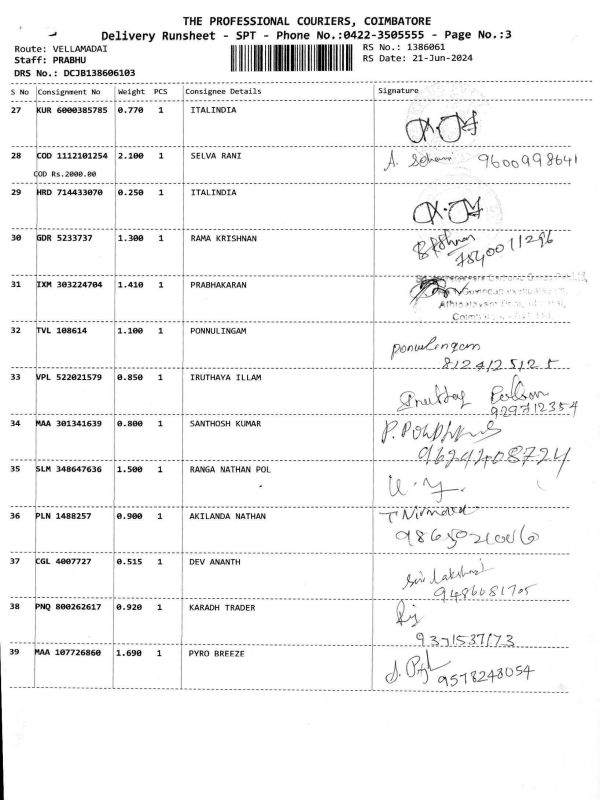 THE PROFESSIONAL COURIERS, COIMBATORE
Delivery Runsheet - SPT - Phone No.:0422-3505555 - Page No.:3
Route: VELLAMADAI RS No.: 1386061
Staff: PRABHU RS Date: 21-Jun-2024
DRS No.: DCJB138606103
S No Consignment No Weight PCS Consignee Details Signature
27 KUR 6000385785 0.770 1 ITALINDIA
28 COD 1112101254 2.100 1 SELVA RANI A. 9600998641
COD Rs.2000.00
29 HRD 714433070 0.250 1 ITALINDIA
30 GDR 5233737 1.300 1 RAMA KRISHNAN
31 IXM 303224704 1.410 1 PRABHAKARAN
32 TVL 108614 1.100 1 PONNULINGAM ponnulingam
8124125125
33 VPL 522021579 0.850 1 IRUTHAYA ILLAM
929712354
34 MAA 301341639 0.800 1 SANTHOSH KUMAR
9624208724
35 SLM 348647636 1.500 1 RANGA NATHAN POL
36 PLN 1488257 0.900 1 AKILANDA NATHAN T Nirmala
37 CGL 4007727 0.515 1 DEV ANANTH Sri Lakshmi
9486081705
38 PNQ 800262617 0.920 1 KARADH TRADER
9371537173
39 MAA 107726860 1.690 1 PYRO BREEZE
9578248054